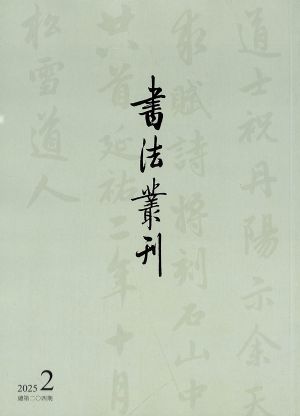 道士祝丹陽示余天
求賦詩將刻石山中
廿八首延祐二年十月
松雪道人
書法叢刊
2025 2
總第二〇四期